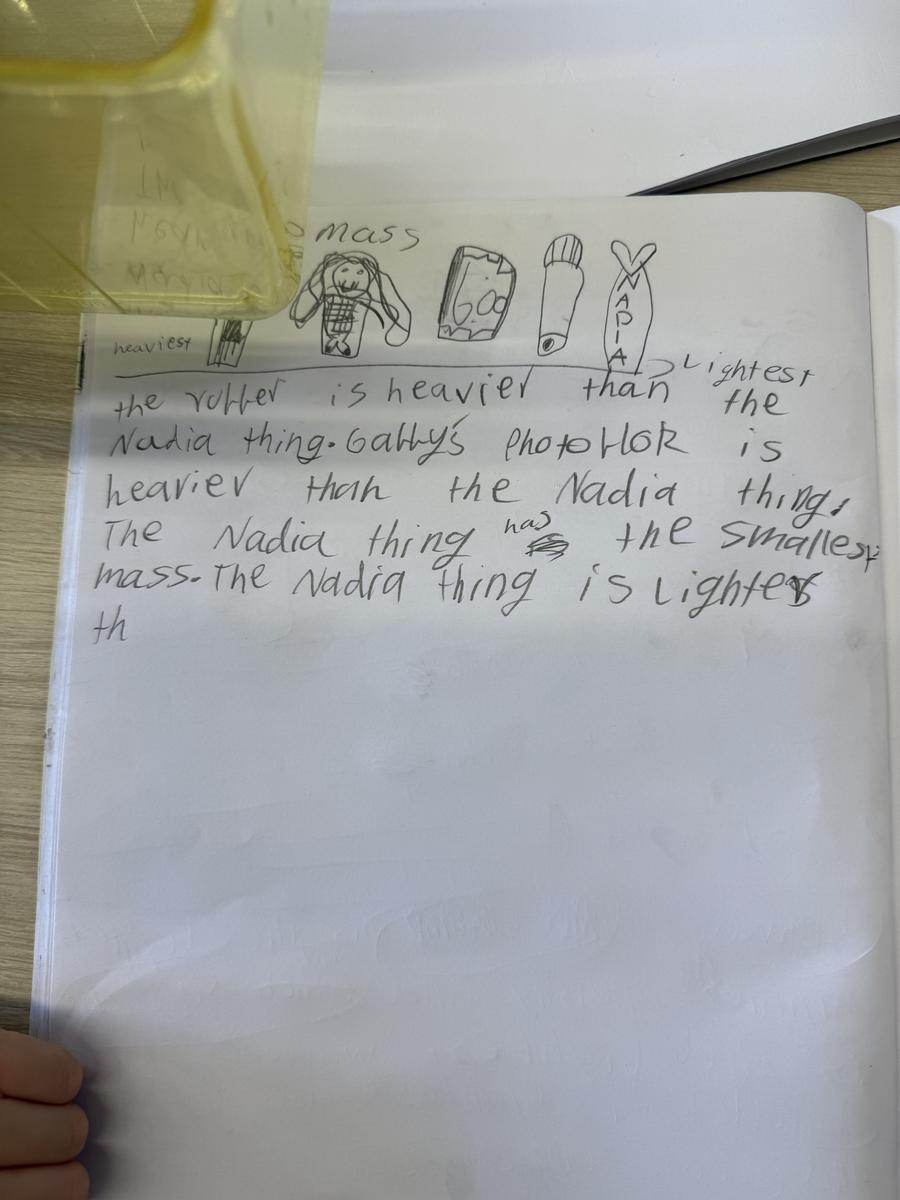 mass
NADIA
heaviest
Lightest
the rubber is heavier than the
Nadia thing. Gabby's photoblok is
heavier than the Nadia thing.
The Nadia thing has the smallest
mass. The Nadia thing is Lighter
th